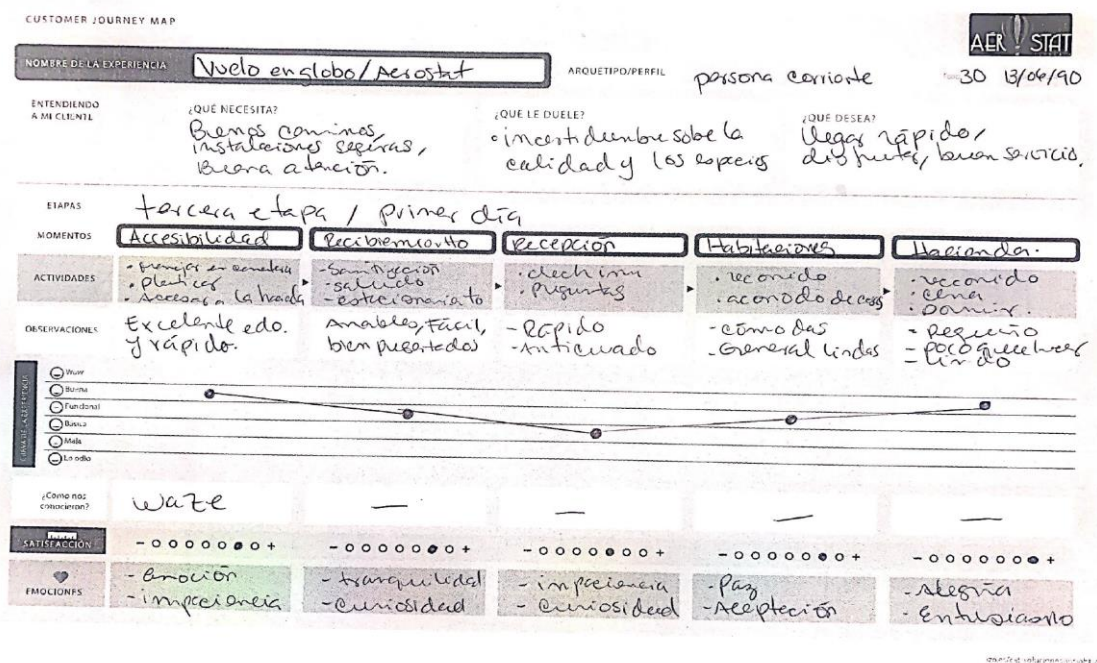 CUSTOMER JOURNEY MAP
AER STAT
NOMBRE DE LA EXPERIENCIA
Vuelo en globo/Aerostat
ARQUETIPO/PERFIL
persona corriente
30 13/06/90
ENTENDIENDO A MI CLIENTE
¿QUÉ NECESITA?
Buenos caminos,
instalaciones seguras,
Buena atención.
¿QUE LE DUELE?
• incertidumbre sobe la
calidad y los espacios
¿QUÉ DESEA?
llegar rápido,
disfrutar, buen servicio.
ETAPAS
tercera etapa / primer día
MOMENTOS
Accesibilidad
Recibiemiento
Recepción
Habitaciones
Hacienda.
ACTIVIDADES
• manejar en carretera
• platicar
• Accesar a la
- Sanitización
- saludo
- estacionamiento
• checkinn
• preguntas
• recorrido
• acomodo de cosas
• recorrido
• cena
• Dormir.
OBSERVACIONES
Excelente edo.
y rápido.
Amables, Fácil,
bien
- Rápido
- Anticuado
- cómodas
- General lindas
- pequeño
- poco que hacer
- lindo
CURVA DE LA EXPERIENCIA
Wow
Buena
Funcional
Básica
Mala
Lo odio
¿Como nos conocieron?
waze
—
—
—
—
SATISFACCIÓN
- +
- +
- +
- +
- +
EMOCIONES
- Emoción
- impaciencia
- tranquilidad
- Curiosidad
- impaciencia
- Curiosidad
- Paz
- Aceptación
- Alegría
- Entusiasmo